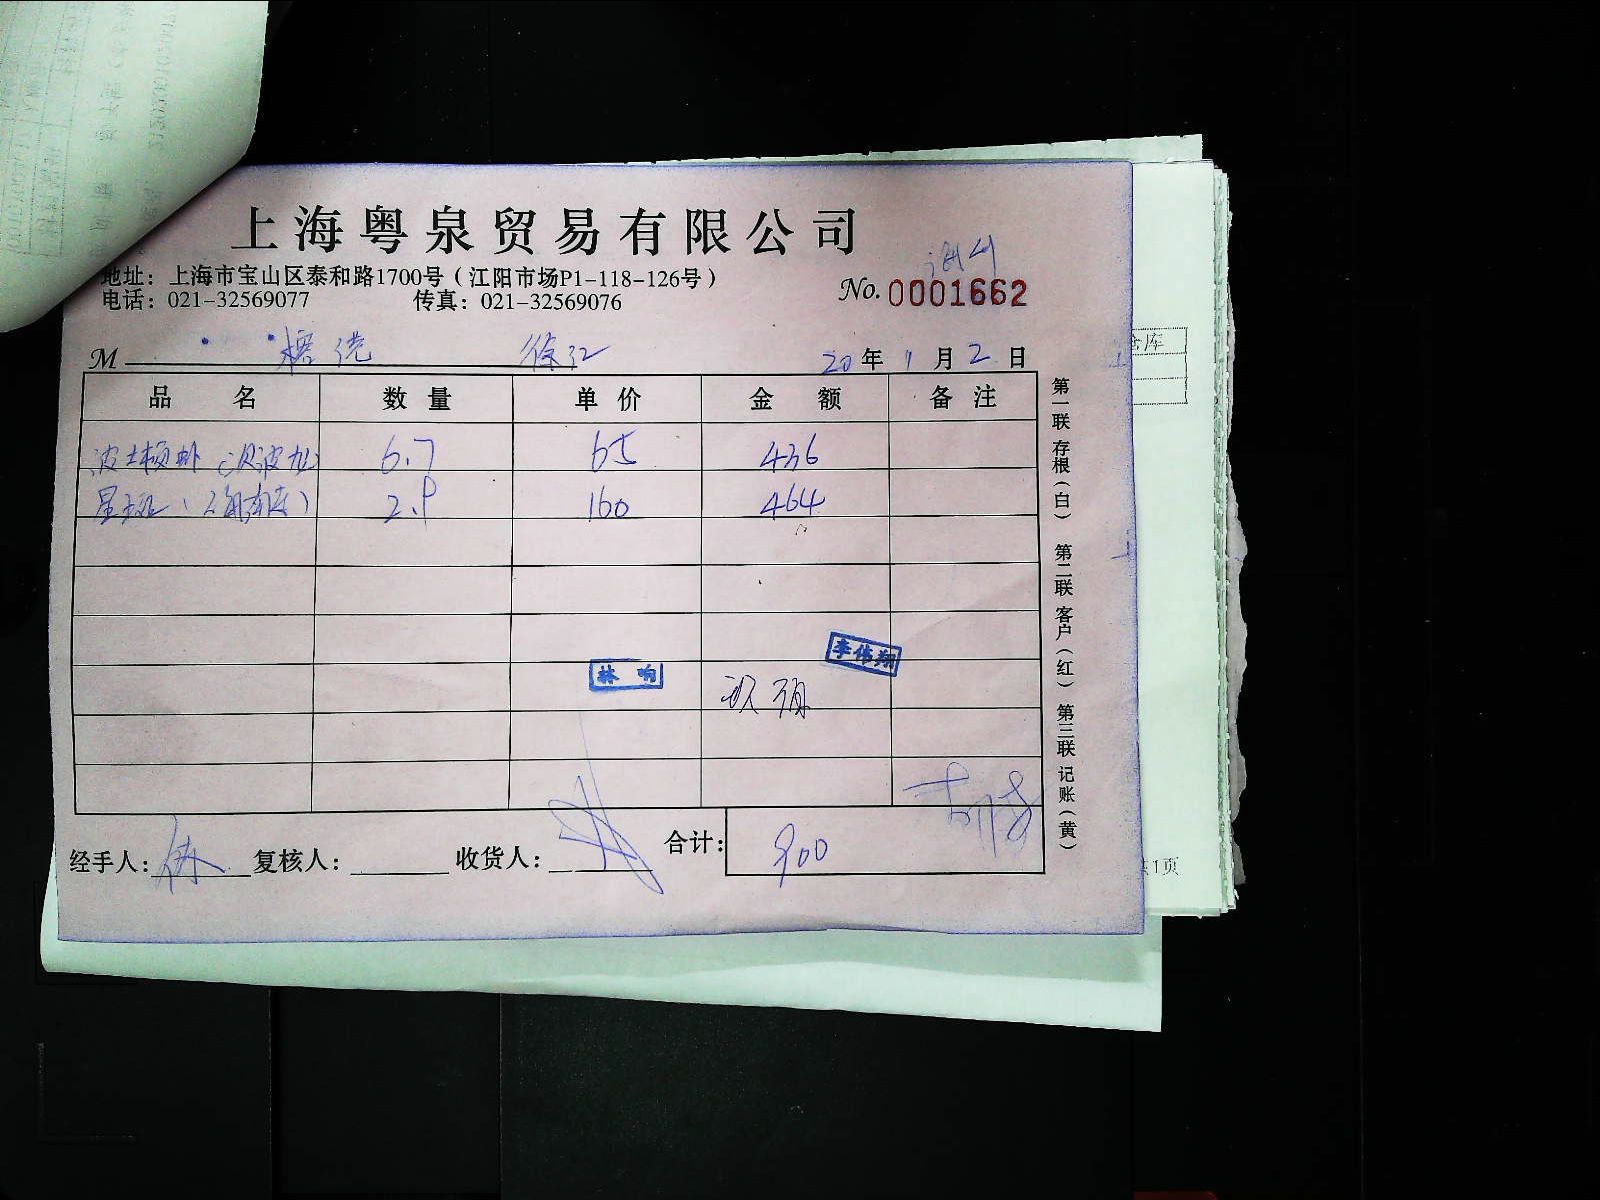 上海粤泉贸易有限公司
地址：上海市宝山区泰和路1700号（江阳市场P1-118-126号）
电话：021-32569077 传真：021-32569076
No. 0001662
M 徐汇
20年1月2日
品名 数量 单价 金额 备注
波士顿 6.7 65 436
星斑 2.9 160 464
林 响
李伟翔
经手人： 复核人： 收货人： 合计： 900
第一联 存根（白） 第二联 客户（红） 第三联 记账（黄）
仓库
共1页